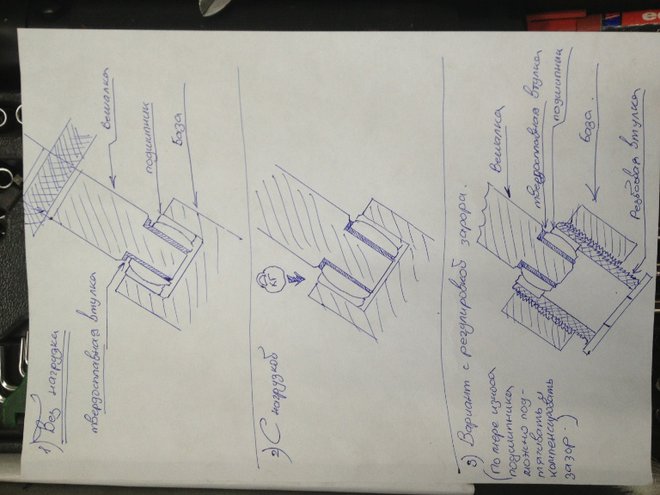 1) Без нагрузки
твердосплавная втулка
вешалка
подшипник
база
2) С нагрузкой
кг
3) Вариант с регулировкой зазора.
(По мере износа
подшипника
можно под-
тягивать и
компенсировать
зазор.)
Вешалка
твердосплавная втулка
подшипник
база
Резьбовая втулка